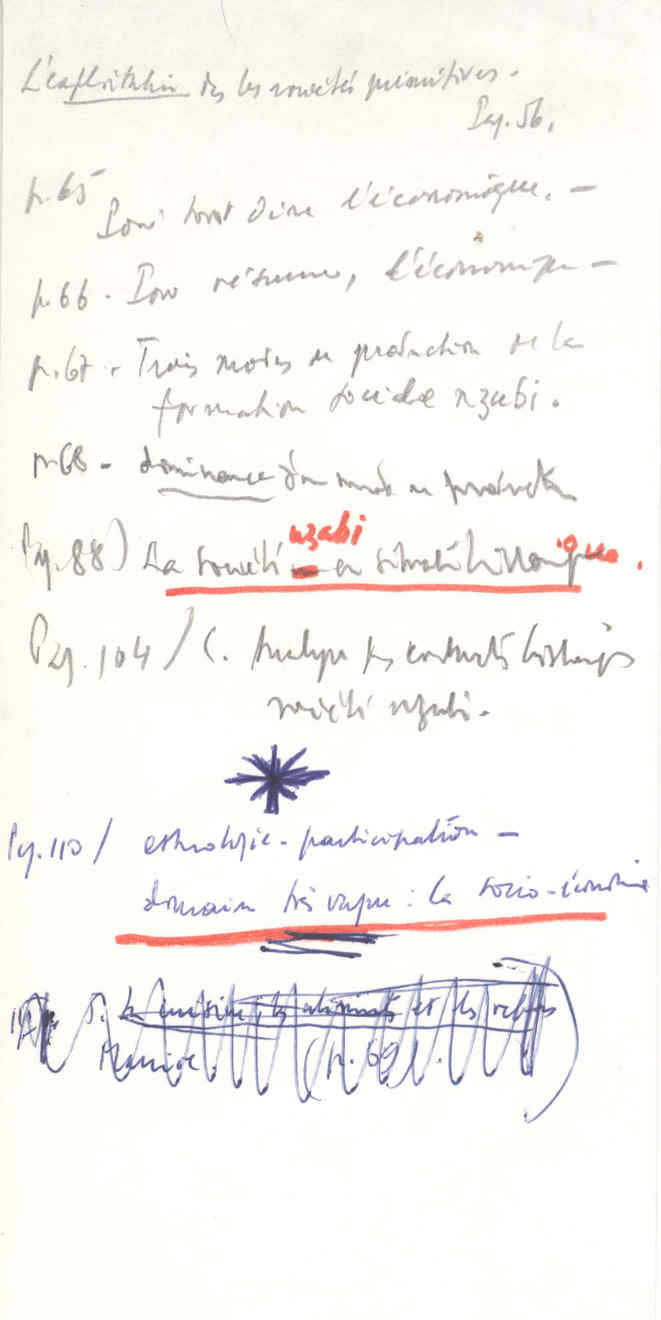 L'exploitation ds les sociétés primitives.
Pag. 56.
p. 65
Pour tout dire l'économique. —
p. 66 - Pour résumer, l'économique —
p. 67 - Trois modes de production de la
formation sociale nzabi.
p. 68 - dominance d'un mode de production
Pag. 88) La société nzabi en situation historique.
Pag. 104 / C. Analyse des historiques
société nzabi.
Pag. 110 / ethnologie - participation —
domaine très vague : la socio-économie
5. la cuisine, les aliments et les
(p. 69).